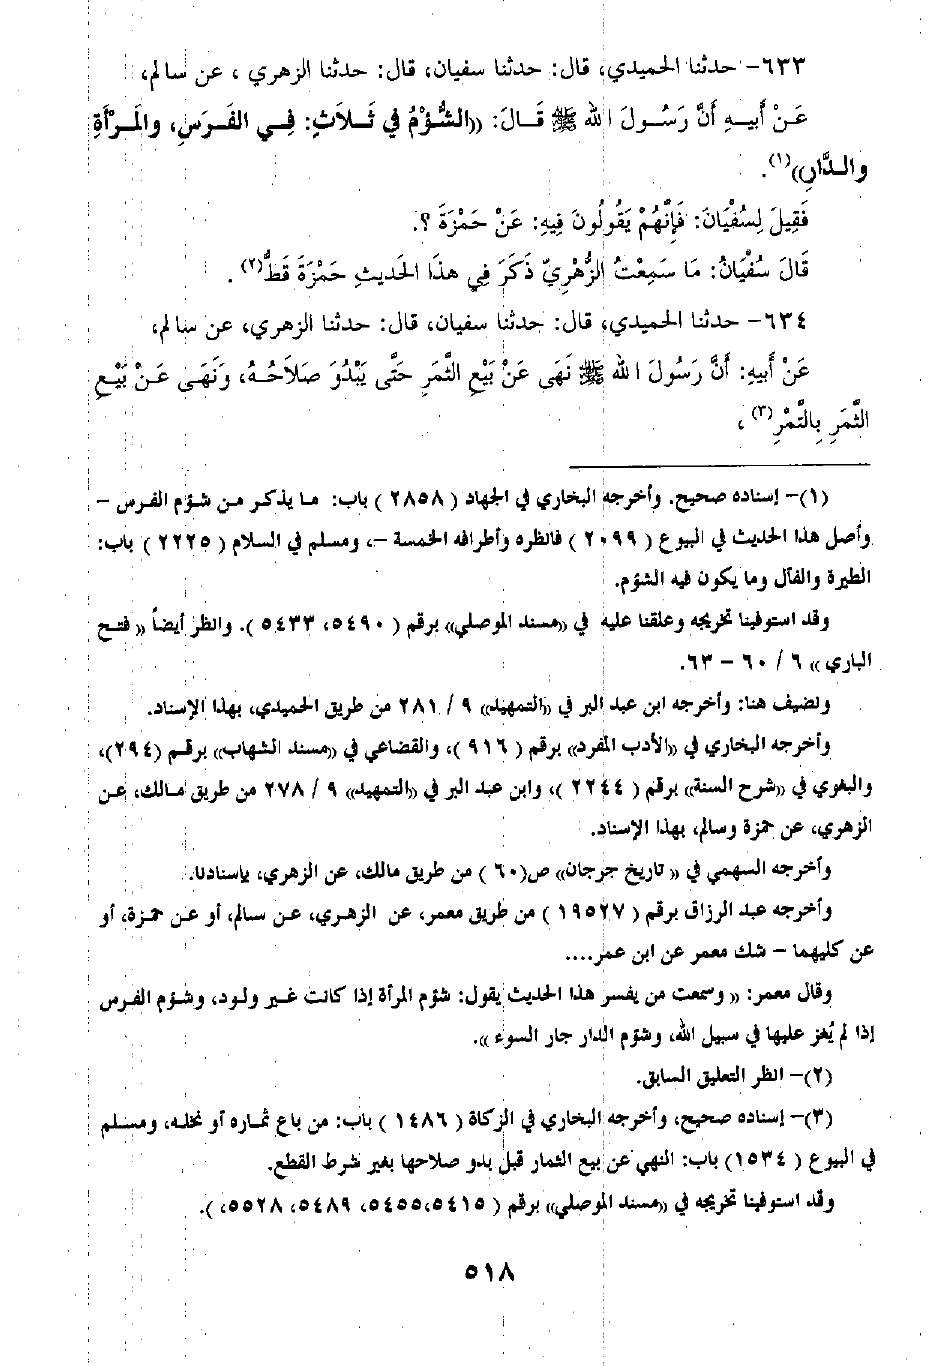 ٦٣٣- حدثنا الحميدي، قال: حدثنا سفيان، قال: حدثنا الزهري ، عن سالم،
عَنْ أَبِيهِ أَنَّ رَسُولَ الله ﷺ قَالَ: «الشُّؤْمُ فِي ثَلاَثٍ: فِي الفَرَسِ، والمَرْأَةِ
والدَّارِ»(١).
فَقِيلَ لِسُفْيَانَ: فَإِنَّهُمْ يَقُولُونَ فِيهِ: عَنْ حَمْزَةَ ؟.
قَالَ سُفْيَانُ: مَا سَمِعْتُ الزُّهْرِيّ ذَكَرَ فِي هذَا الحَديثِ حَمْزَةَ قَطُّ(٢).
٦٣٤- حدثنا الحميدي، قال: حدثنا سفيان، قال: حدثنا الزهري، عن سالم،
عَنْ أَبيهِ: أَنَّ رَسُولَ الله ﷺ نَهَى عَنْ بَيْعِ الثَّمَرِ حَتَّى يَبْدُوَ صَلاَحُهُ، وَنَهَى عَنْ بَيْعِ
الثَّمَرِ بِالتَّمْرِ(٣) ،
(١)- إسناده صحيح. وأخرجه البخاري في الجهاد ( ٢٨٥٨ ) باب: ما يذكر من شؤم الفرس –
وأصل هذا الحديث في البيوع ( ٢٠٩٩ ) فانظره وأطرافه الخمسة –، ومسلم في السلام ( ٢٢٢٥ ) باب:
الطيرة والفأل وما يكون فيه الشؤم.
وقد استوفينا تخريجه وعلقنا عليه في «مسند الموصلي» برقم ( ٥٤٩٠، ٥٤٣٣ ). وانظر أيضاً « فتح
الباري » ٦ / ٦٠ – ٦٣.
ونضيف هنا: وأخرجه ابن عبد البر في «التمهيد» ٩ / ٢٨١ من طريق الحميدي، بهذا الإسناد.
وأخرجه البخاري في «الأدب المفرد» برقم ( ٩١٦ )، والقضاعي في «مسند الشهاب» برقم (٢٩٤)،
والبغوي في «شرح السنة» برقم ( ٢٢٤٤ )، وابن عبد البر في «التمهيد» ٩ / ٢٧٨ من طريق مالك، عن
الزهري، عن حمزة وسالم، بهذا الإسناد.
وأخرجه السهمي في « تاريخ جرجان» ص(٦٠ ) من طريق مالك، عن الزهري، بإسنادنا.
وأخرجه عبد الرزاق برقم ( ١٩٥٢٧ ) من طريق معمر، عن الزهري، عن سالم، أو عن حمزة، أو
عن كليهما – شك معمر عن ابن عمر....
وقال معمر: « وسمعت من يفسر هذا الحديث يقول: شؤم المرأة إذا كانت غير ولود، وشؤم الفرس
إذا لم يُغز عليها في سبيل الله، وشؤم الدار جار السوء ».
(٢)- انظر التعليق السابق.
(٣)- إسناده صحيح، وأخرجه البخاري في الزكاة ( ١٤٨٦ ) باب: من باع ثماره أو نخله، ومسلم
في البيوع ( ١٥٣٤) باب: النهي عن بيع الثمار قبل بدو صلاحها بغير شرط القطع.
وقد استوفينا تخريجه في «مسند الموصلي» برقم ( ٥٤١٥، ٥٤٥٥، ٥٤٨٩، ٥٥٢٨، ).
٥١٨